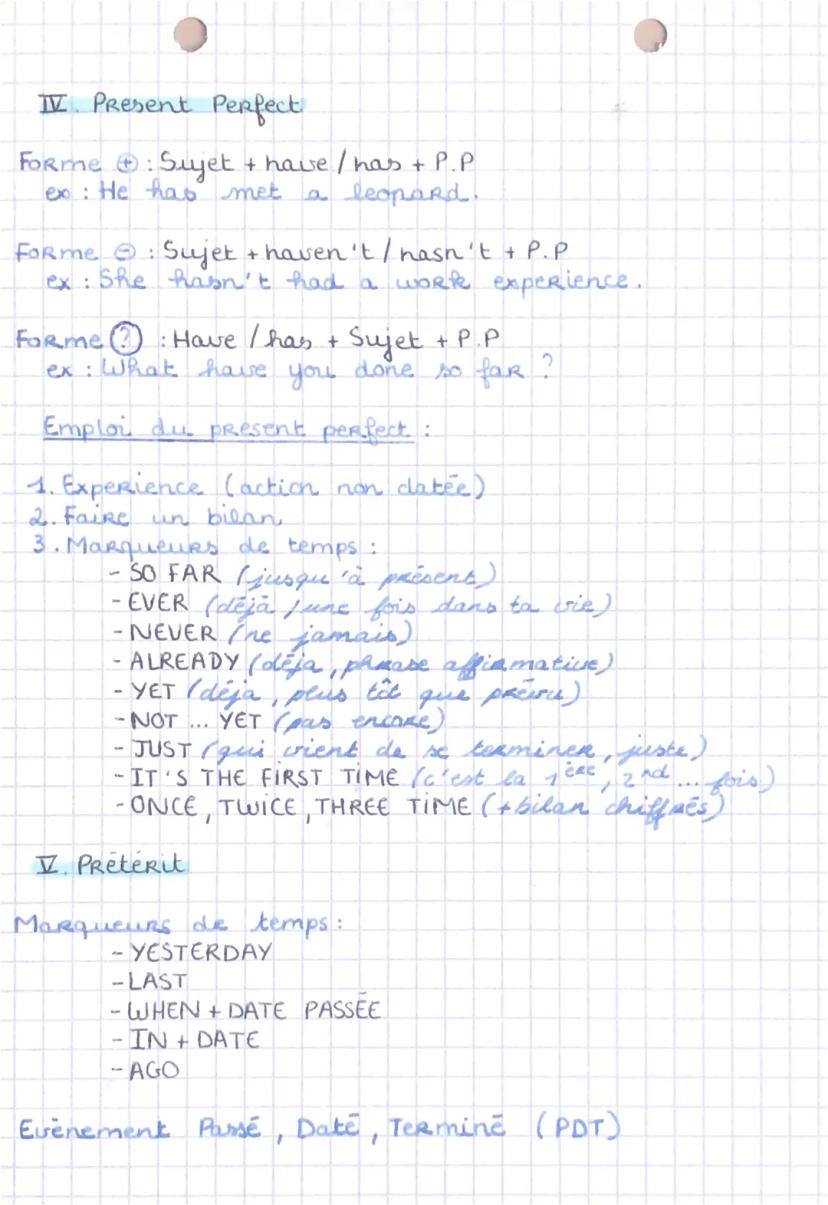 IV. Present Perfect
Forme ⊕ : Sujet + have / has + P.P
ex : He has met a leopard.
Forme ⊖ : Sujet + haven't / hasn't + P.P
ex : She hasn't had a work experience.
Forme ? : Have / has + Sujet + P.P
ex : What have you done so far ?
Emploi du present perfect :
1. Experience (action non datée)
2. Faire un bilan
3. Marqueurs de temps :
- SO FAR (jusqu'à présent)
- EVER (déjà / une fois dans ta vie)
- NEVER (ne jamais)
- ALREADY (déja, phrase affirmative)
- YET (déja, plus tôt que prévu)
- NOT ... YET (pas encore)
- JUST (qui vient de se terminer, juste)
- IT'S THE FIRST TIME (c'est la 1ère, 2nd ... fois)
- ONCE, TWICE, THREE TIME (+ bilan chiffrés)
V. Prétérit
Marqueurs de temps :
- YESTERDAY
- LAST
- WHEN + DATE PASSÉE
- IN + DATE
- AGO
Evènement Passé, Daté, Terminé (PDT)